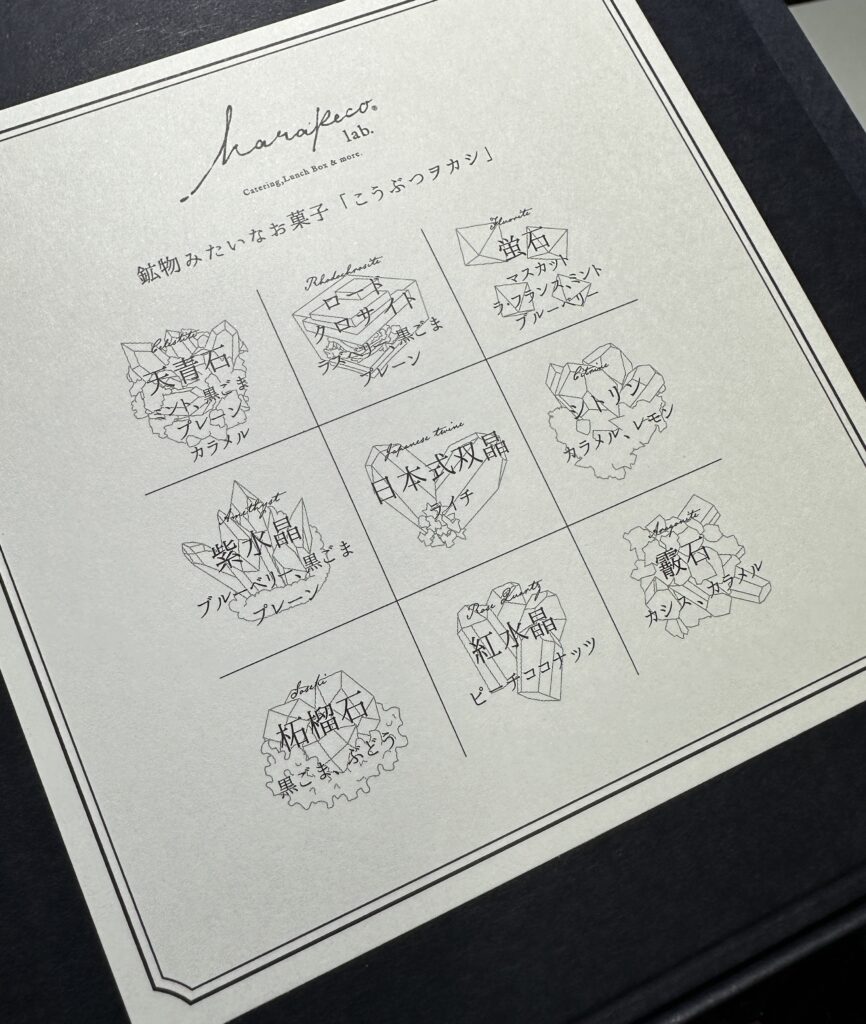 harapeco®
lab.
Catering,Lunch Box & more.
鉱物みたいなお菓子「こうぶつヲカシ」
Celestite
天青石
ミント、黒ごま
プレーン
カラメル
Rhodochrosite
ロード
クロサイト
ラズベリー、黒ごま
プレーン
Fluorite
蛍石
マスカット
ラ・フランス、ミント
ブルーベリー
Amethyst
紫水晶
ブルーベリー、黒ごま
プレーン
Japanese twine
日本式双晶
ライチ
Citrine
シトリン
カラメル、レモン
柘榴石
黒ごま、ぶどう
Rose Quartz
紅水晶
ピーチココナッツ
Aragonite
霰石
カシス、カラメル